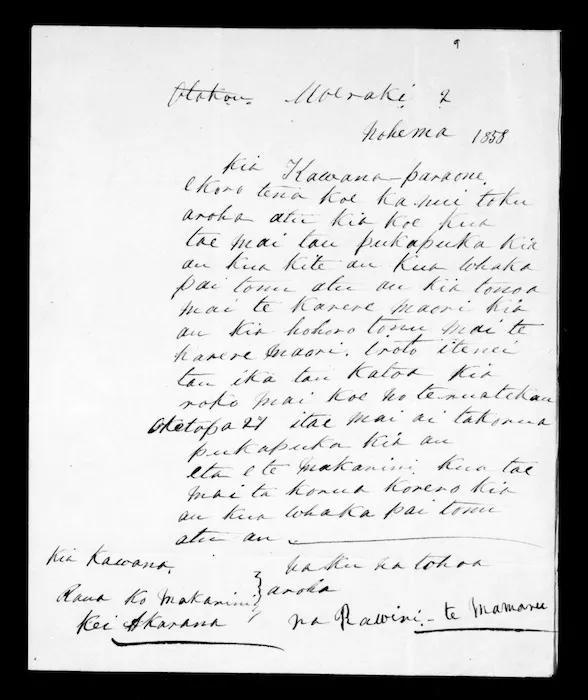 9
Otakou. Moeraki 2
Nohema 1858
Kia Kawana paraone
ekoro tena koe ka nui toku
aroha atu kia koe kua
tae mai tau pukapuka kia
au kua kite au kua whaka
pai tonu atu au kia tonoa
mai te karere maori kia
au kia hohoro tonu mai te
karere Maori. Iroto itenei
tau ika tau katoa kia
roko mai koe no te ruatekau
Oketopa 27 itae mai ai takorua
pukapuka kia au
eta ete Makarini kua tae
mai ta korua korero kia
au kua whaka pai tonu
atu au
Kia Kawana.
Raua ko Makarini
Kei Akarana
naku na tohoa
aroha
na Rawiri - te Mamaru